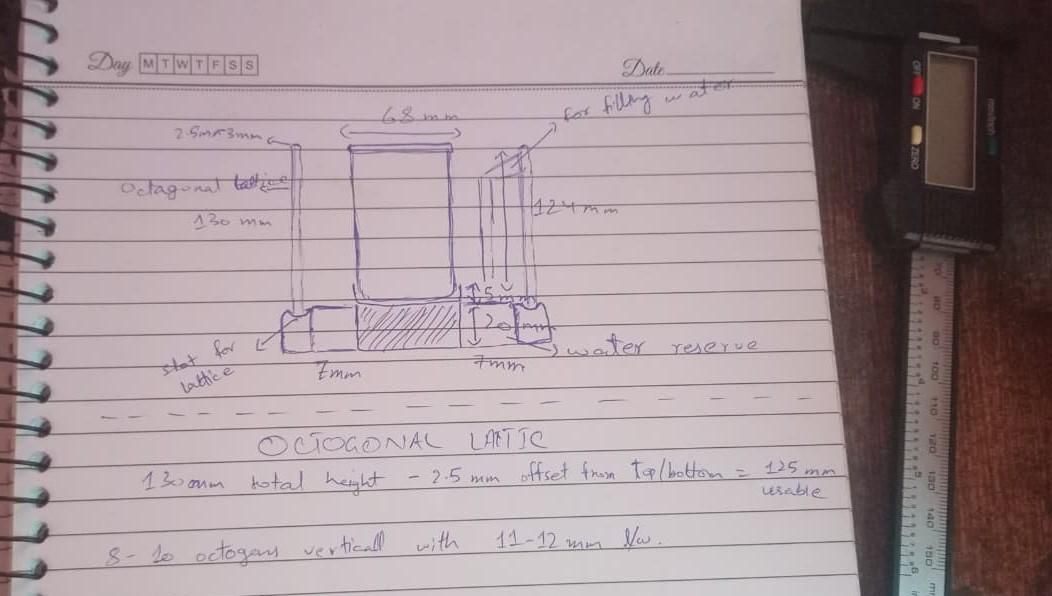 Day M T W T F S S
Date
68 mm
for filling water
2.5mm 3mm
Octagonal lattice
130 mm
124 mm
5 mm
20 mm
slot for
lattice
7mm
7mm
water reserve
OCTOGONAL LATTIC
130mm total height - 2.5 mm offset from top/bottom = 125 mm
usable
8-10 octogons verticall with 11-12 mm l/w.
OFF ON
ZERO
mm/inch
90
100
110
120
130
140
150